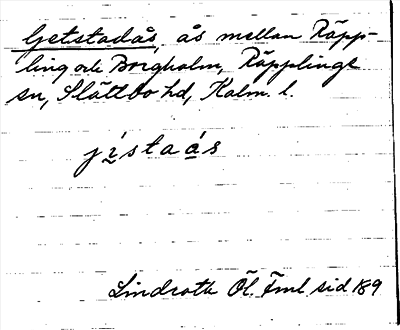 Getstadås, ås mellan Räpp-
ling och Borgholm, Räpplinge
sn, Slättbo hd, Kalm. l.
jístaás
Lindroth Öl. Fml. sid 189